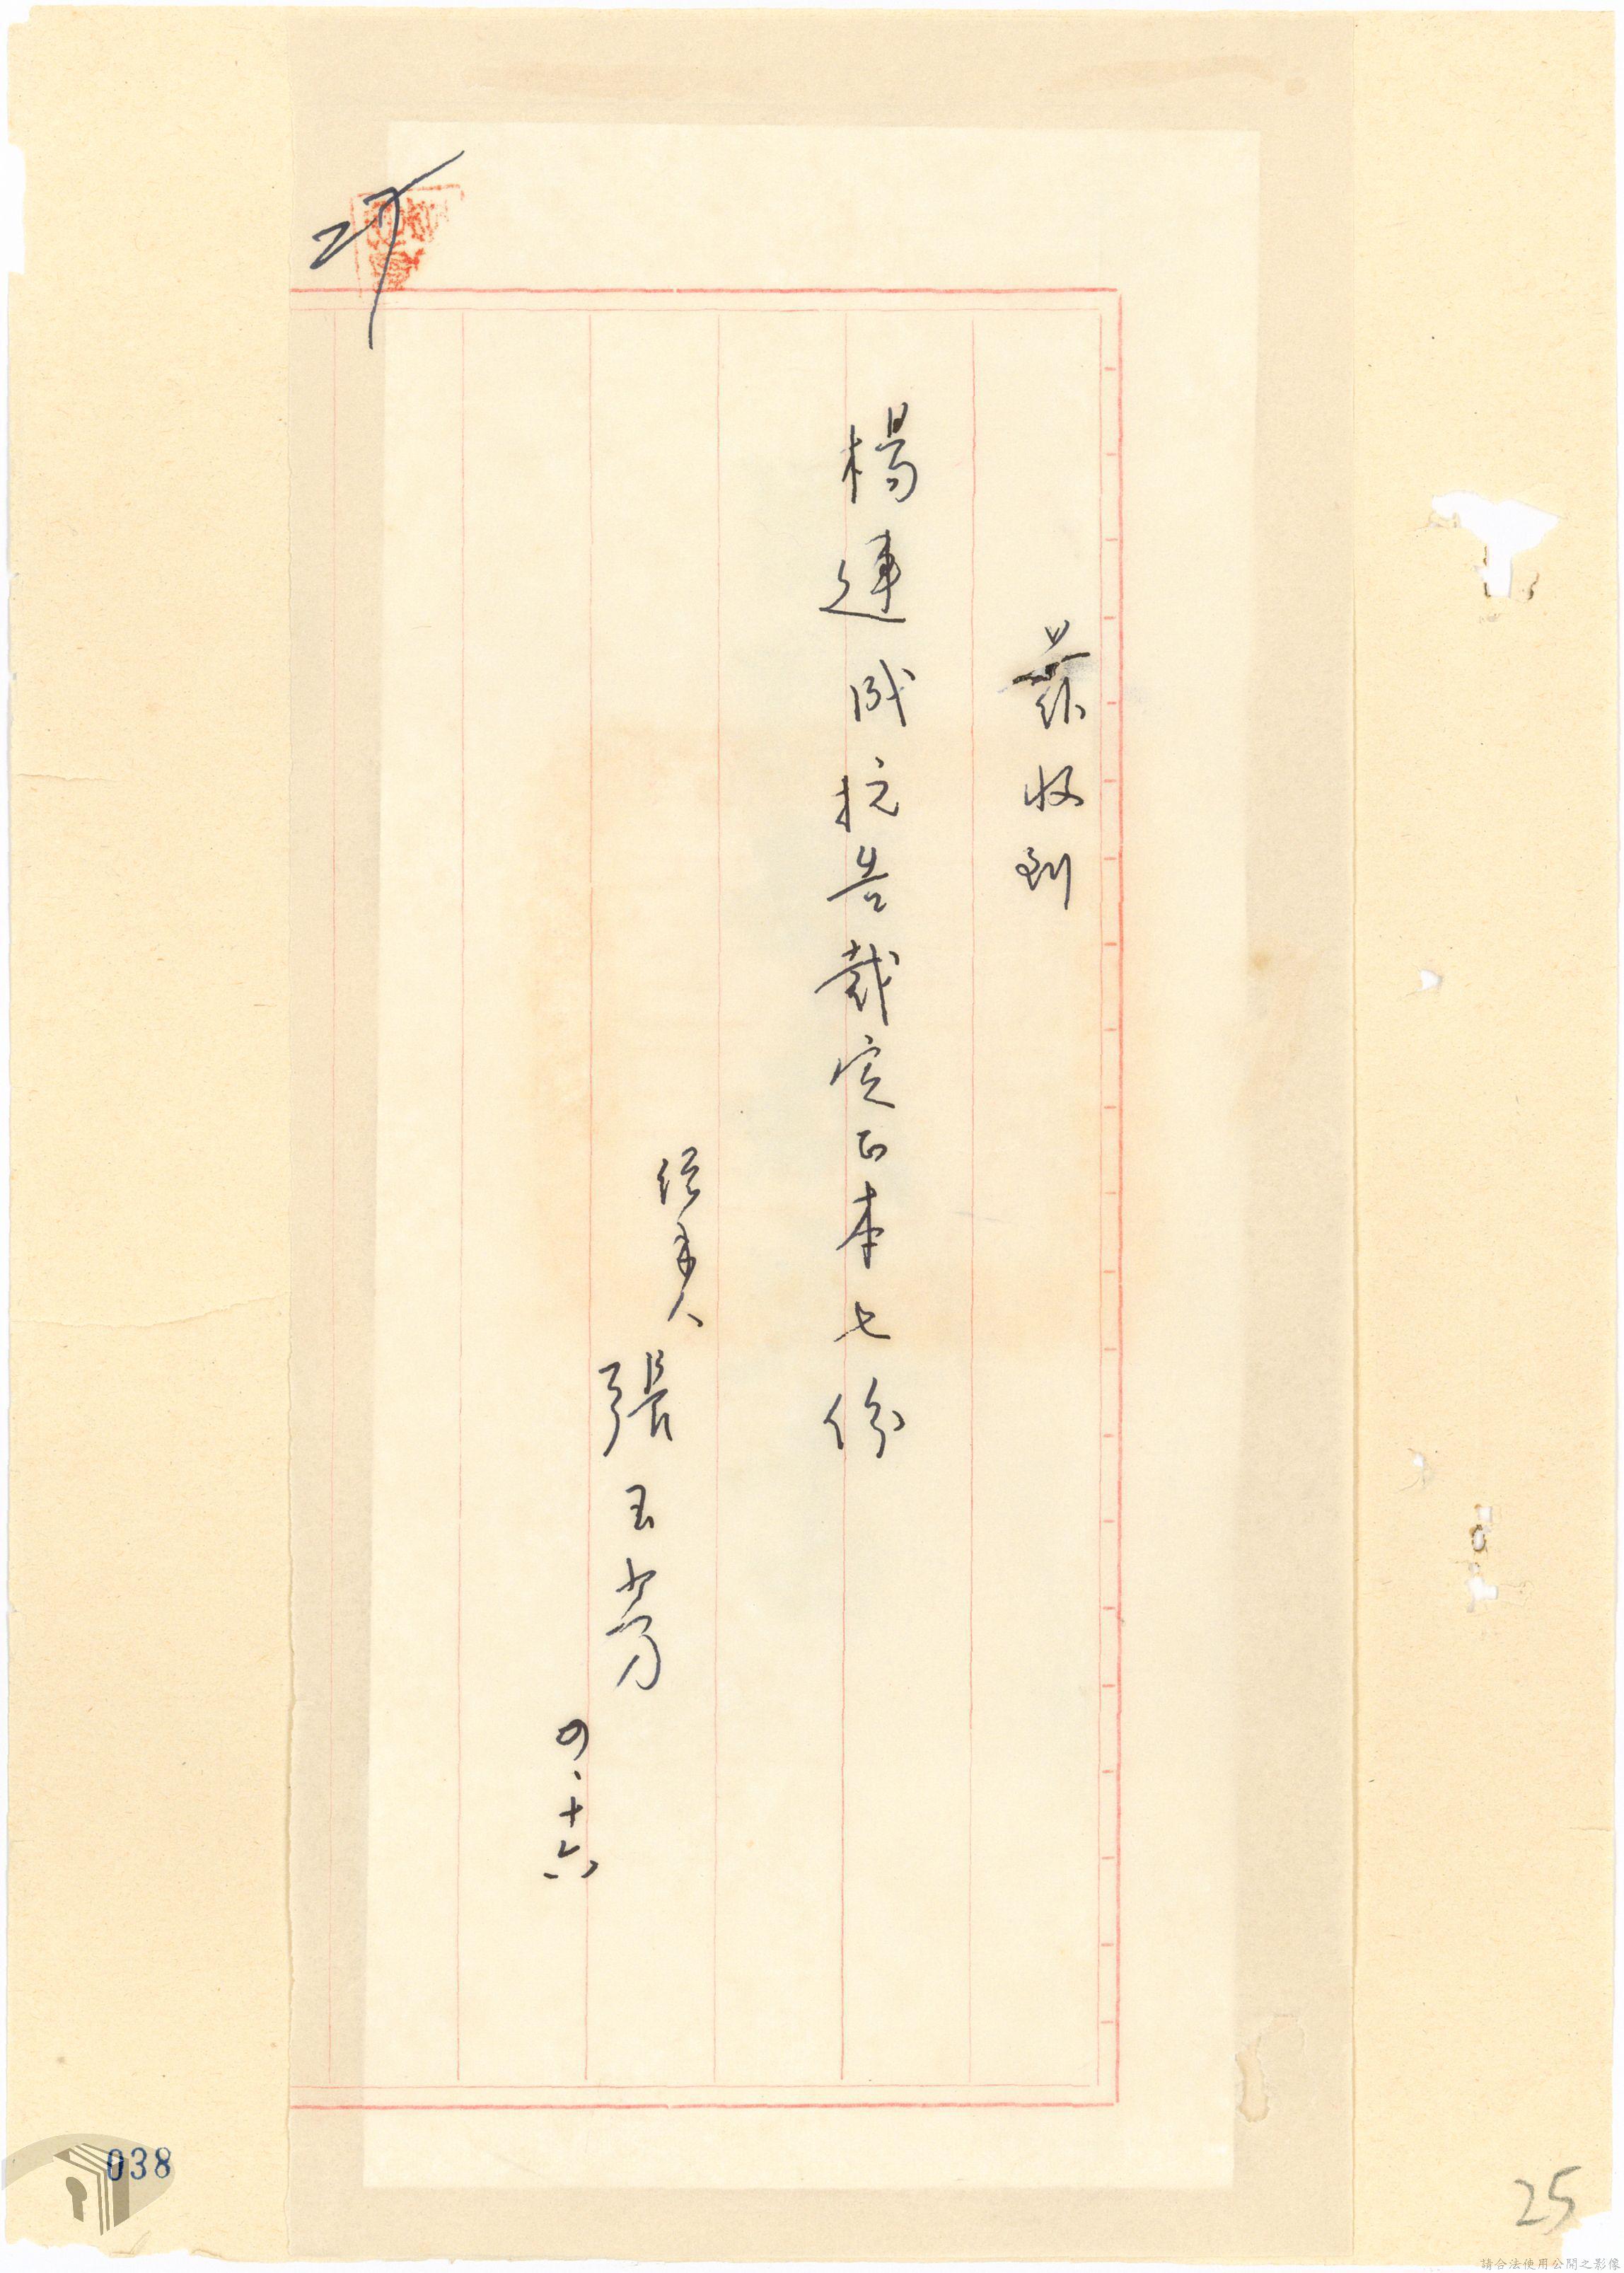 茲收到
楊連成抗告裁定正本七份
經手人
張玉芳
四、十六
27
038
25
請合法使用公開之影像